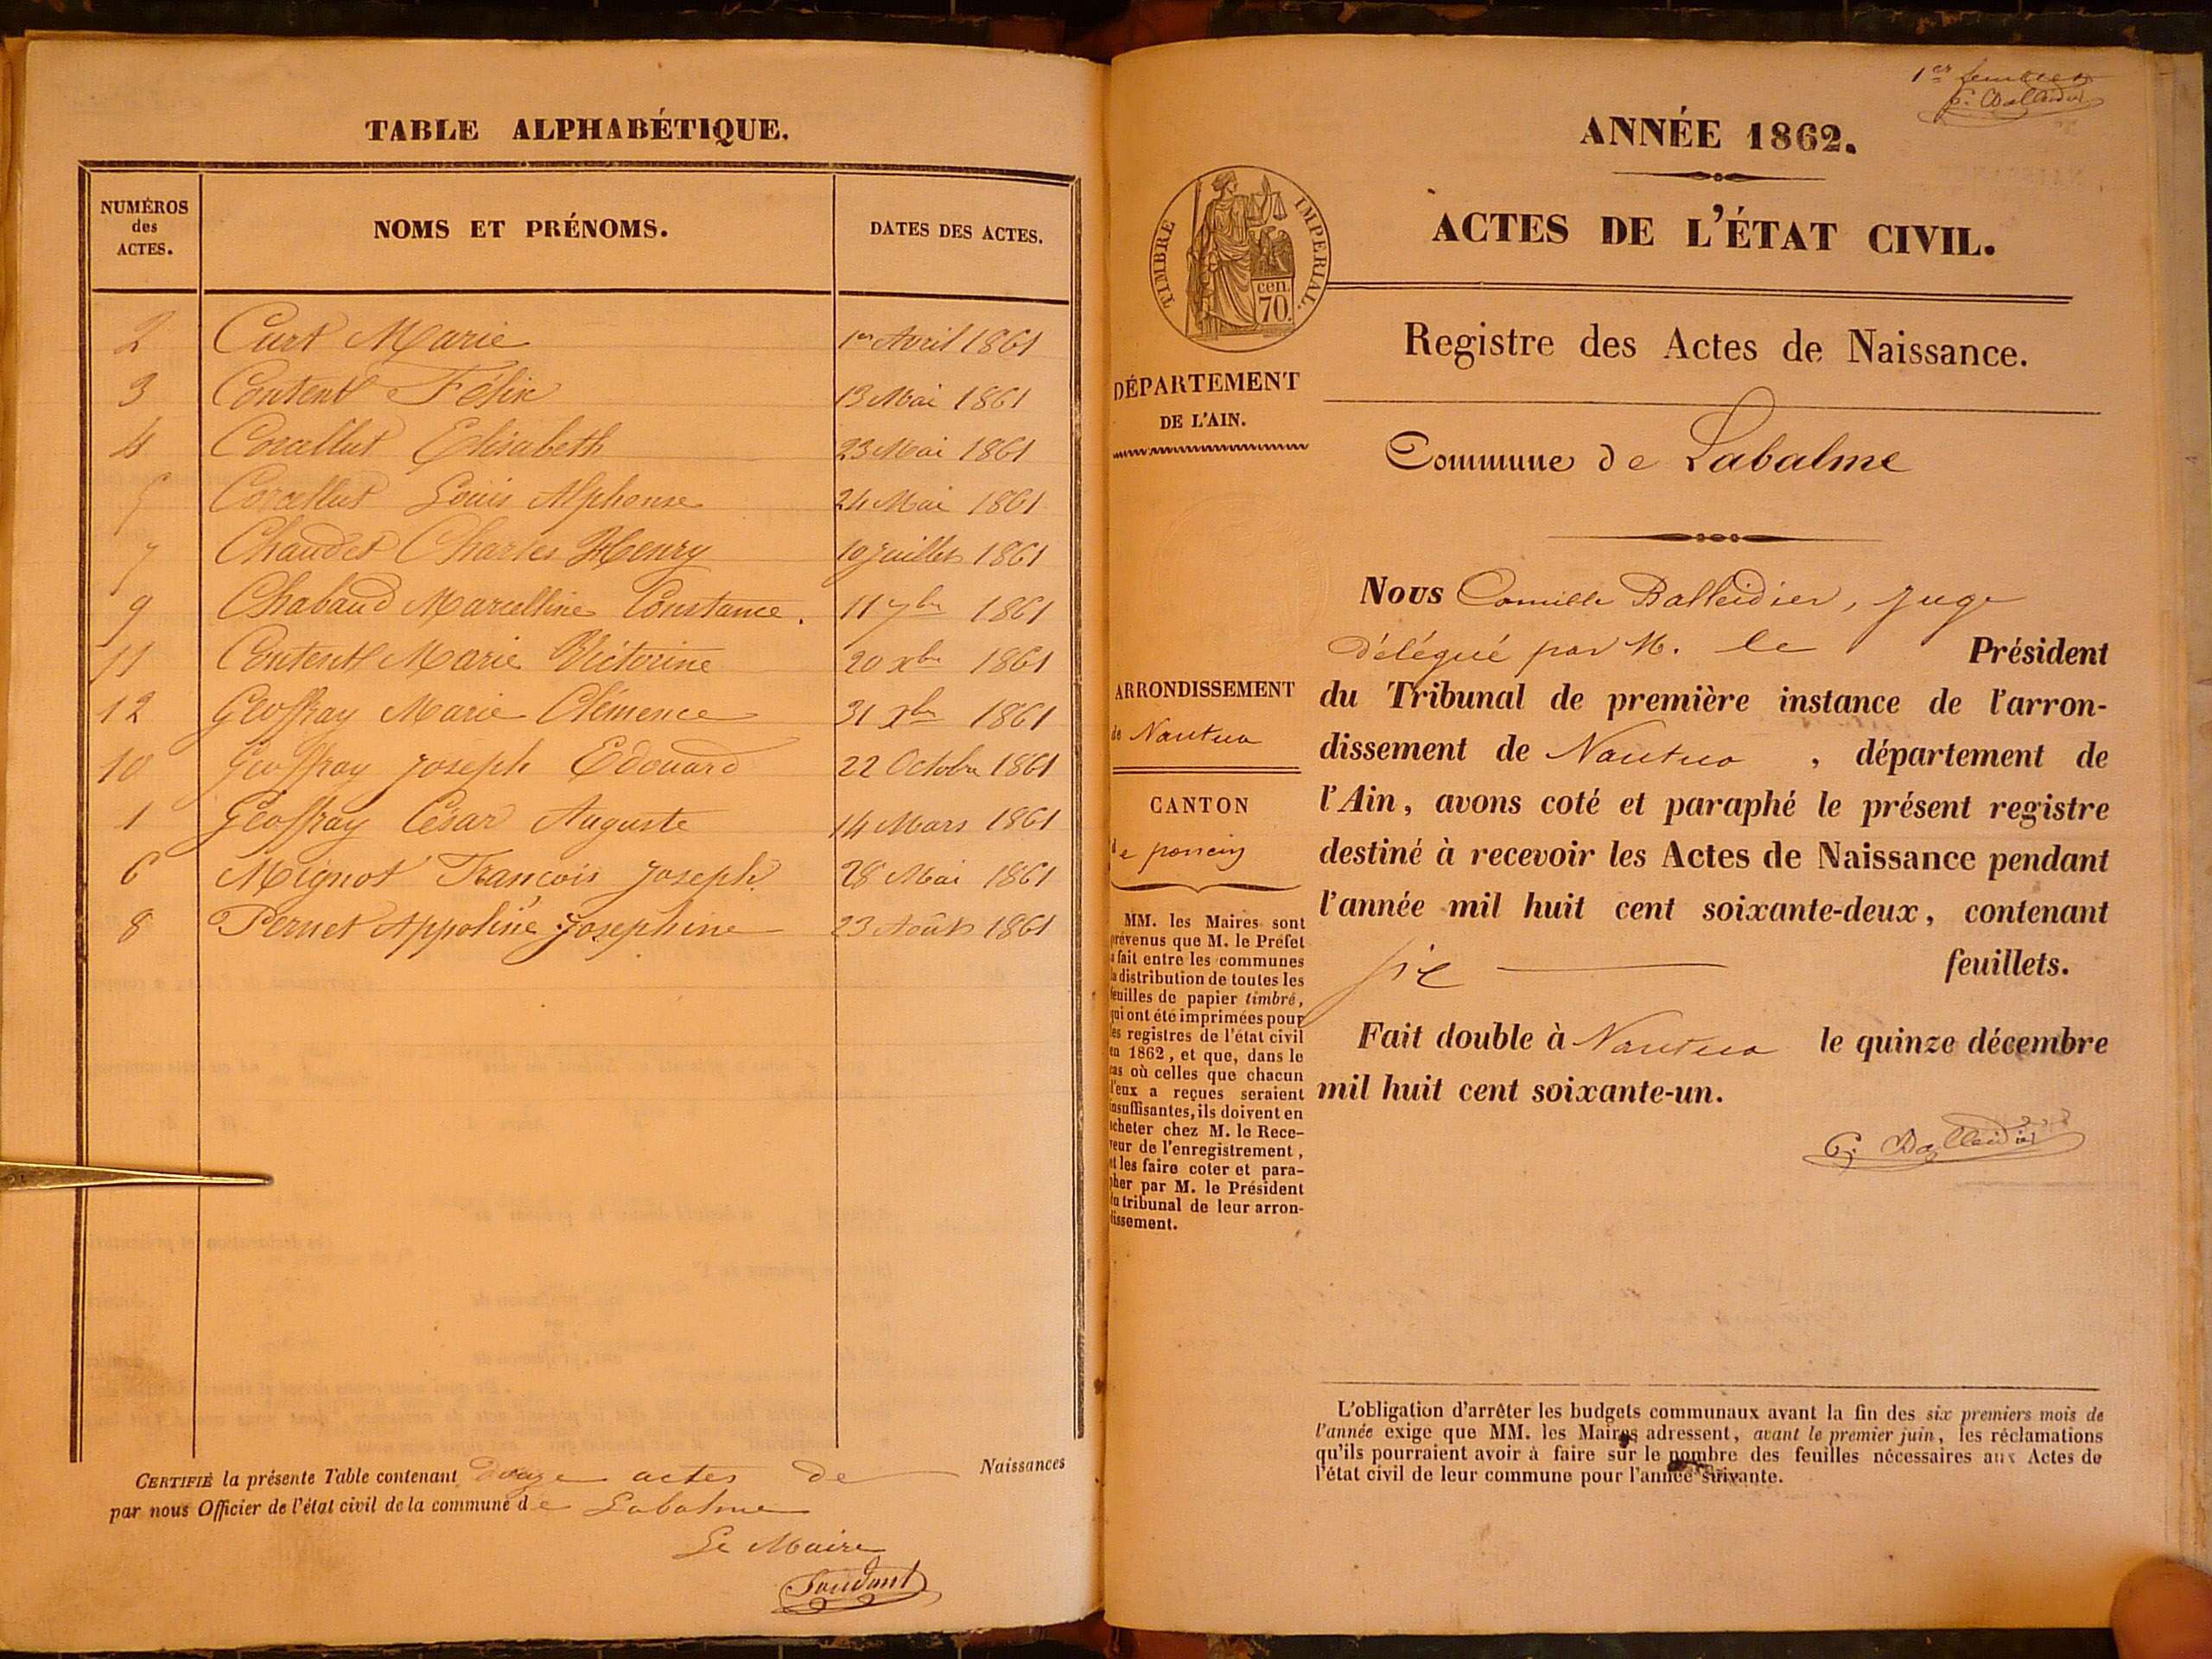 TABLE ALPHABÉTIQUE.
NUMÉROS des ACTES. NOMS ET PRÉNOMS. DATES DES ACTES.
2 Curt Marie 1er Avril 1861
3 Contenst Félix 13 Mai 1861
4 Corcellut Elisabeth 23 Mai 1861
5 Corcellut Louis Alphonse 24 Mai 1861
7 Chaudet Charles Henry 10 juillet 1861
9 Chabaud Marcelline Constance. 11 7bre 1861
11 Contenst Marie Victorine 20 xbre 1861
12 Geoffray Marie Clémence 31 xbre 1861
10 Geoffray joseph Edouard 22 Octobre 1861
1 Geoffray César Auguste 14 Mars 1861
6 Mignot François joseph 28 Mai 1861
8 Pernet Appoline josephine 23 Août 1861
CERTIFIÉ la présente Table contenant douze actes de Naissances
par nous Officier de l'état civil de la commune de Labalme
Le Maire
1er
C. Balleidier
ANNÉE 1862.
ACTES DE L'ÉTAT CIVIL.
TIMBRE IMPERIAL.
cen.
70.
Registre des Actes de Naissance.
DÉPARTEMENT
DE L'AIN.
Commune de Labalme
Nous Camille Balleidier, juge
délégué par M. le Président
du Tribunal de première instance de l'arron-
dissement de Nantua, département de
l'Ain, avons coté et paraphé le présent registre
destiné à recevoir les Actes de Naissance pendant
l'année mil huit cent soixante-deux, contenant
six feuillets.
Fait double à Nantua le quinze décembre
mil huit cent soixante-un.
C. Balleidier
ARRONDISSEMENT
de Nantua
CANTON
de poncin
MM. les Maires sont
prévenus que M. le Préfet
a fait entre les communes
la distribution de toutes les
feuilles de papier timbré,
qui ont été imprimées pour
les registres de l'état civil
en 1862, et que, dans le
cas où celles que chacun
d'eux a reçues seraient
insuffisantes, ils doivent en
acheter chez M. le Rece-
veur de l'enregistrement,
et les faire coter et para-
pher par M. le Président
du tribunal de leur arron-
dissement.
L'obligation d'arrêter les budgets communaux avant la fin des six premiers mois de
l'année exige que MM. les Maires adressent, avant le premier juin, les réclamations
qu'ils pourraient avoir à faire sur le nombre des feuilles nécessaires aux Actes de
l'état civil de leur commune pour l'année suivante.